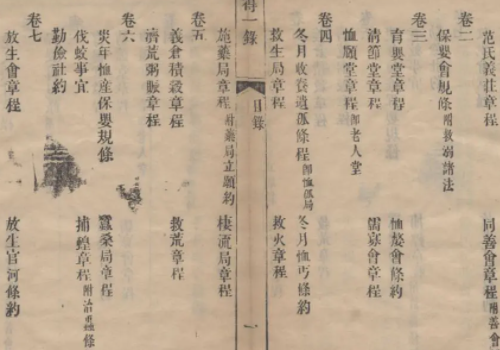 范氏義莊章程　同善會章程 附善會
卷二
保嬰會規條 附救溺諸法
卷三
育嬰堂章程　恤嫠會條約
清節堂章程　儒寡會章程
恤頤堂章程 即老人堂
卷四
冬月收養遺孤條程 即恤孤局　冬月恤丐條約
救生局章程　救火章程
得一錄　目錄　一
施藥局章程 附藥局立願約　棲流局章程
卷五
義倉積穀章程　救荒章程
濟荒粥賑章程
卷六
災年恤產保嬰規條　蠶桑局章程
伐蛟事宜　捕蝗章程 附治蟲條
勤儉社約
卷七
放生會章程　放生官河條約